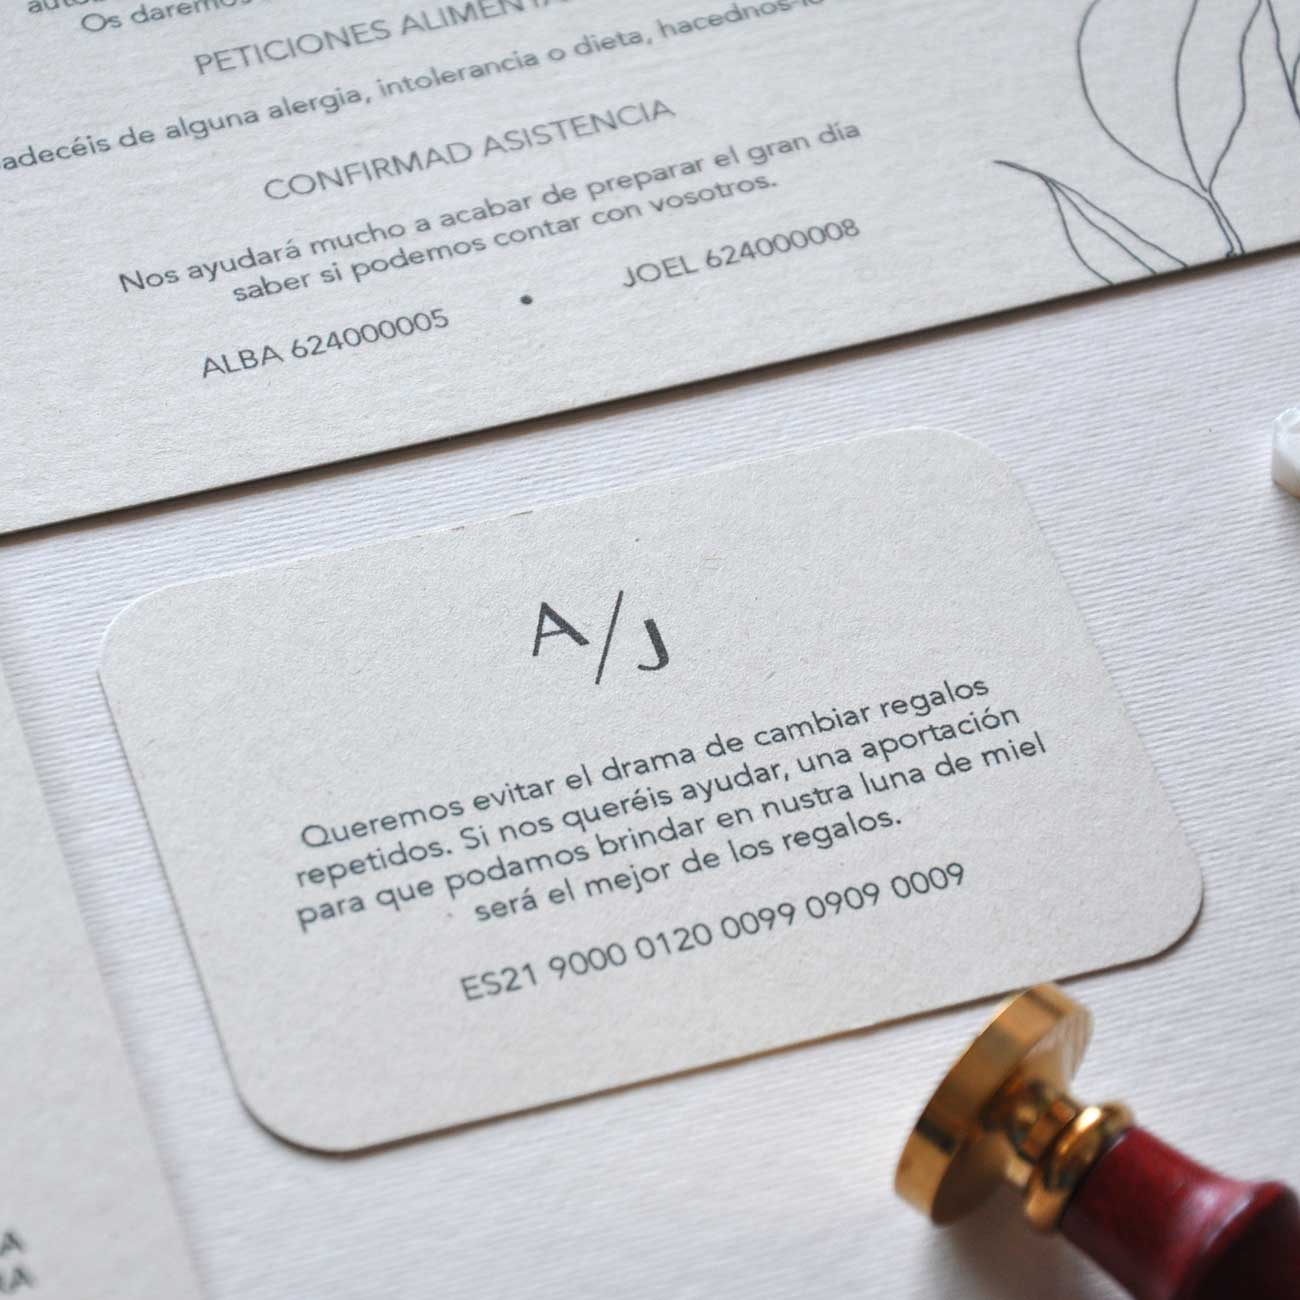 Os daremos
PETICIONES
adecéis de alguna alergia, intolerancia o dieta,
CONFIRMAD ASISTENCIA
Nos ayudará mucho a acabar de preparar el gran día
saber si podemos contar con vosotros.
ALBA 624000005 • JOEL 624000008
A/J
Queremos evitar el drama de cambiar regalos
repetidos. Si nos queréis ayudar, una aportación
para que podamos brindar en nustra luna de miel
será el mejor de los regalos.
ES21 9000 0120 0099 0909 0009